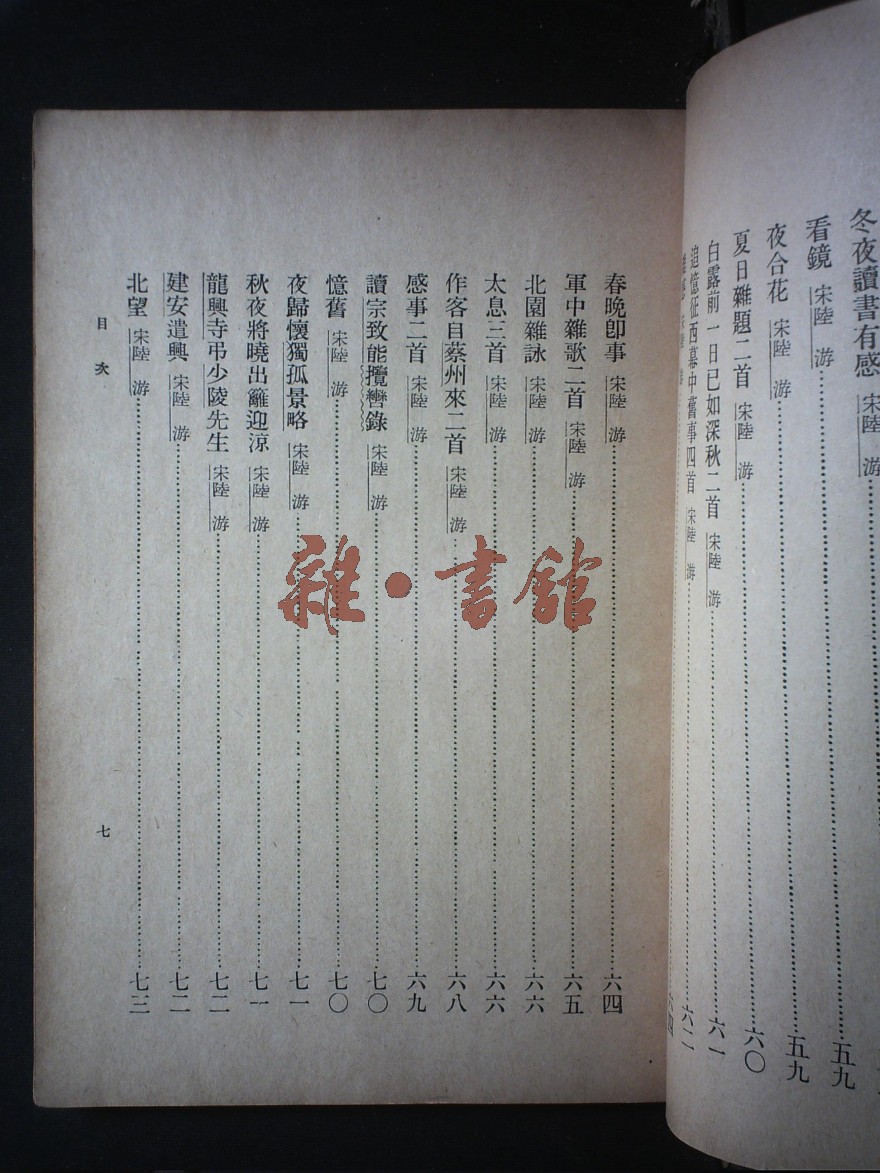 冬夜讀書有感 宋陸 游
看鏡 宋陸 游……五九
夜合花 宋陸 游……五九
夏日雜題二首 宋陸 游……六〇
白露前一日已如深秋二首 宋陸 游……六一
追憶征西幕中舊事四首 宋陸 游……六二
春晚卽事 宋陸 游……六四
軍中雜歌二首 宋陸 游……六五
北園雜詠 宋陸 游……六六
太息三首 宋陸 游……六六
作客自蔡州來二首 宋陸 游……六八
感事二首 宋陸 游……六九
讀宗致能攬轡錄 宋陸 游……七〇
憶舊 宋陸 游……七〇
夜歸懷獨孤景略 宋陸 游……七一
秋夜將曉出籬迎涼 宋陸 游……七一
龍興寺弔少陵先生 宋陸 游……七二
建安遣興 宋陸 游……七二
北望 宋陸 游……七三
目 次
七
雜·書館